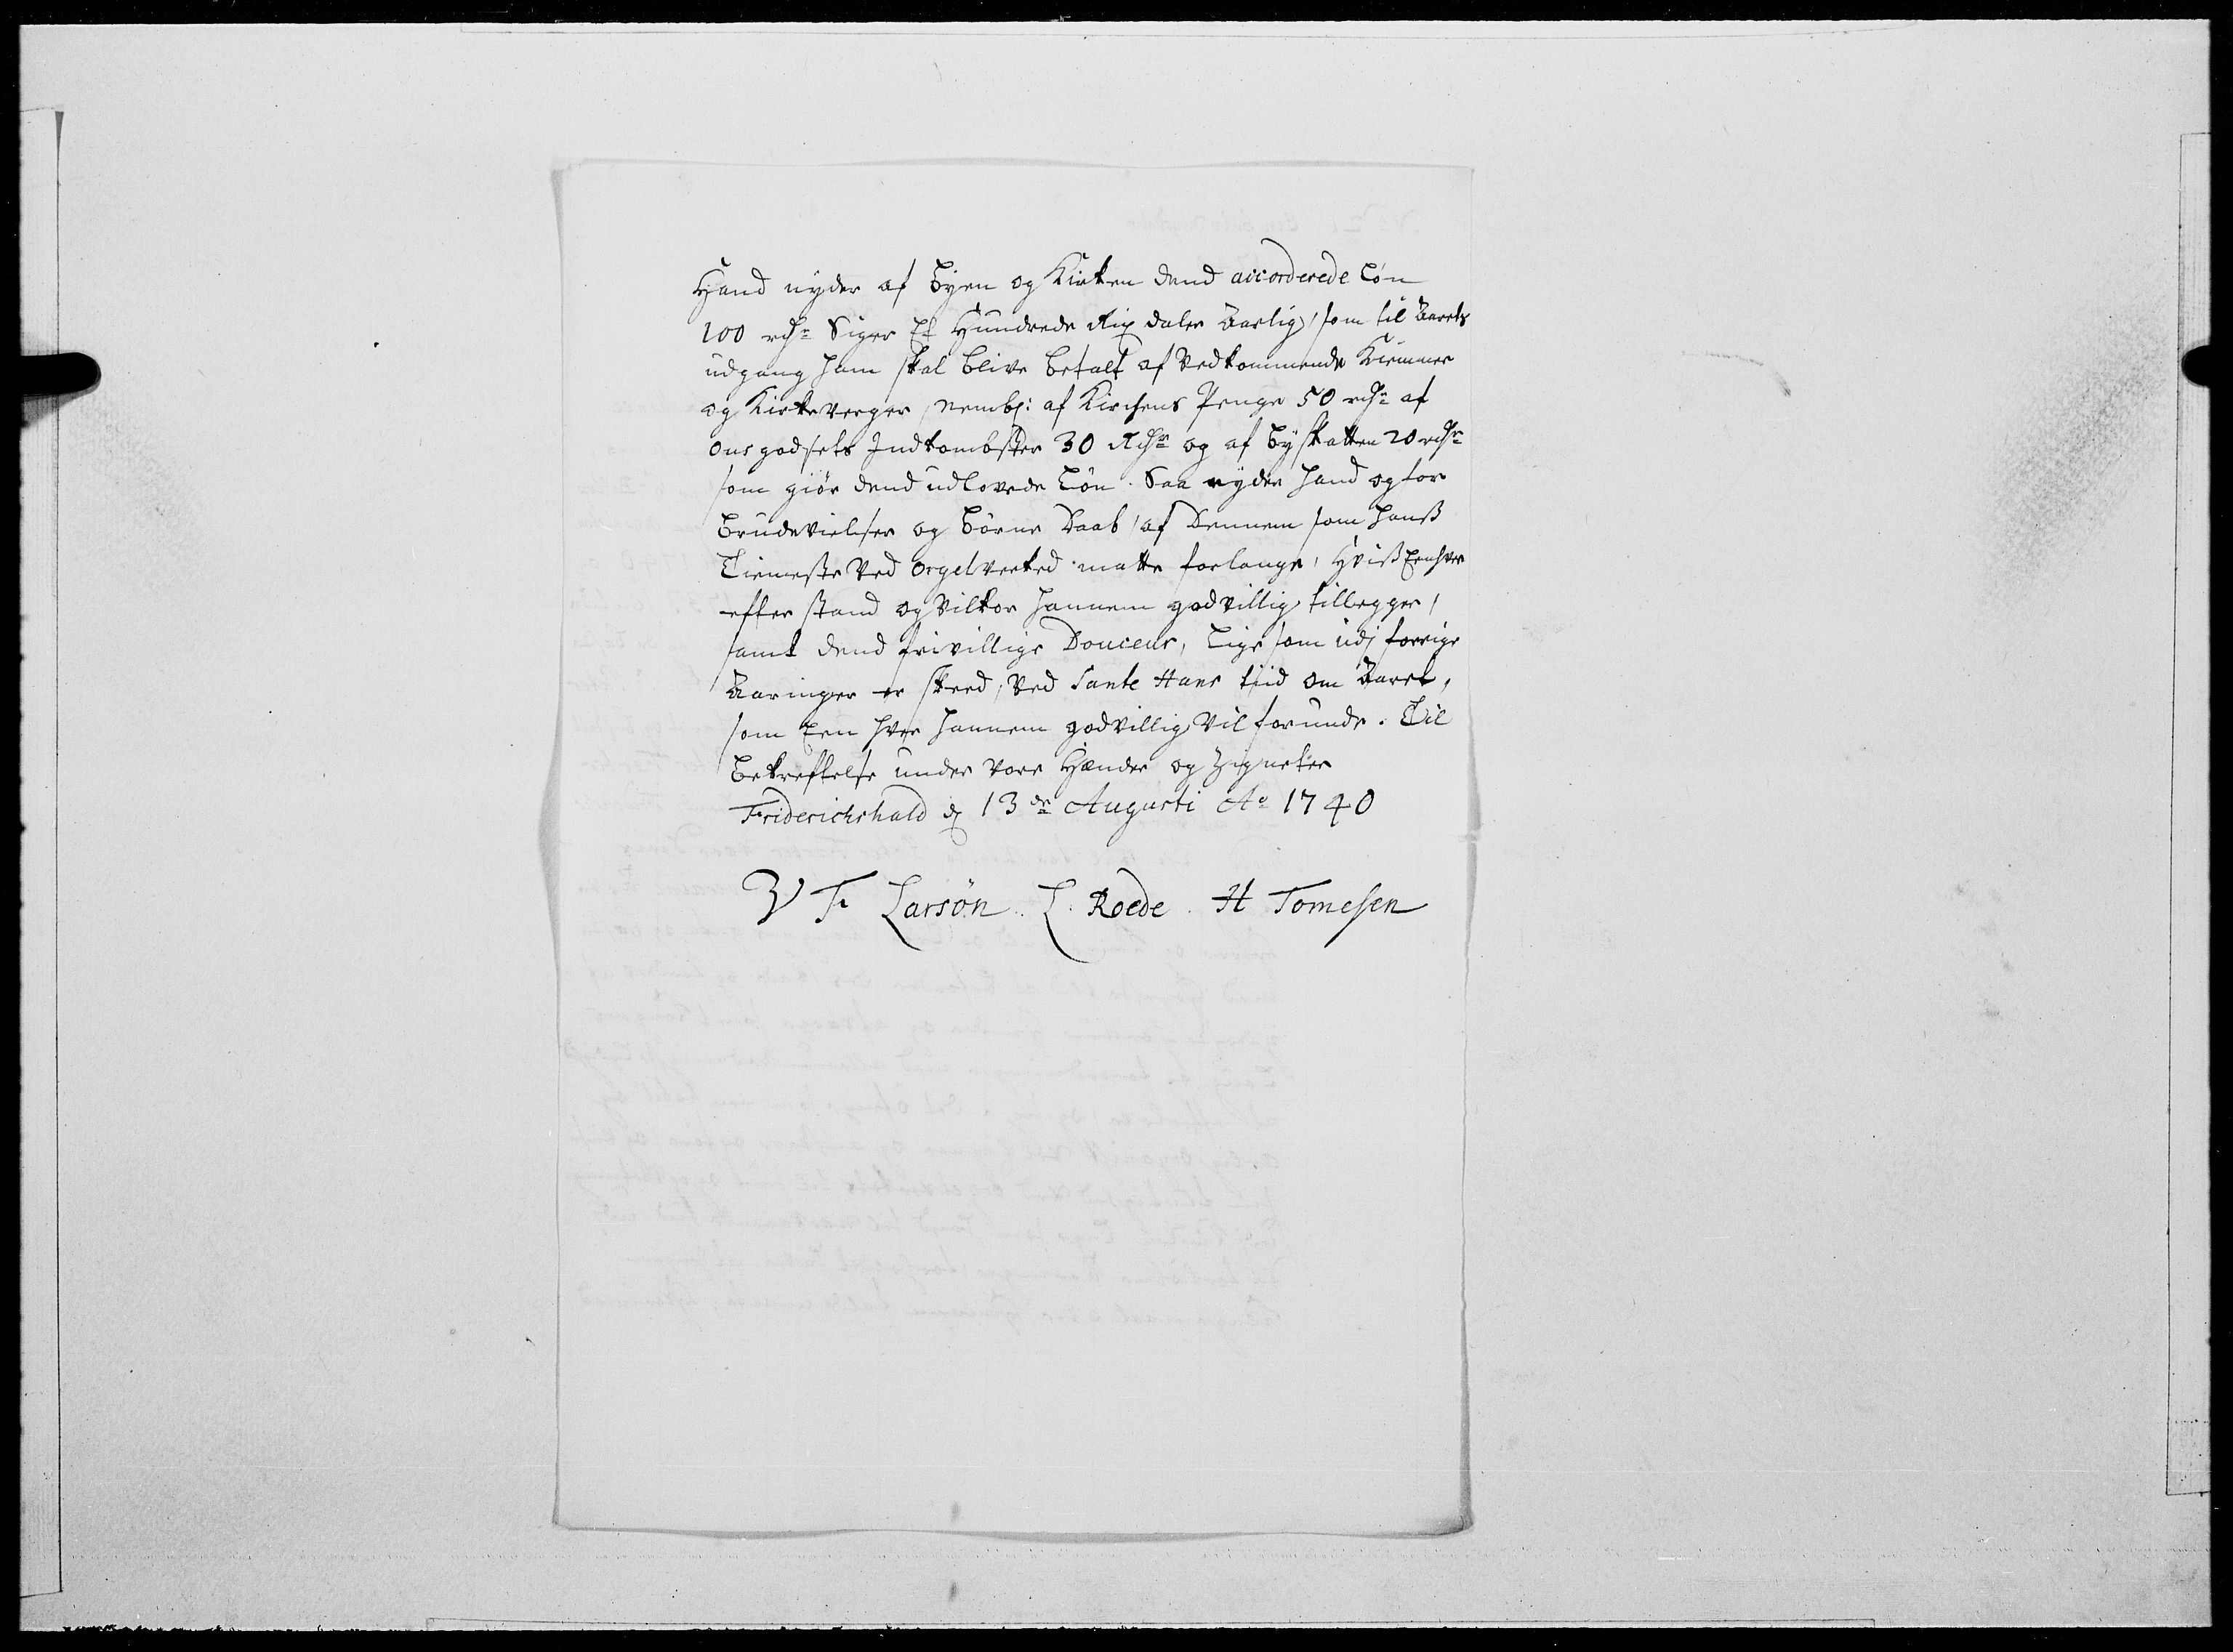 Hand nyder af Byen og Kirken dend accorderede Løn
100 rdr Siger Et Hundrede Rix daler Aarlig, som til Aarets
udgang ham skal blive betalt af Vedkommende Kiemner
og Kirkeverger, nembl: af Kirchens Penge 50 rdr af
Ous godsets Indkombster 30 Rdr og af Byskatten 20 rdr
som giør dend udlovede Løn. Saa nyder hand og for
Brudevielser og Børne Daab, af Dennem som hanß
Tieneste Ved Orgelverked matte forlange, Hviß Eenhver
effter stand og Vilkor hannem godvillig tillegger,
samt dend frivillige Douceur, Lige som udj forrige
Aaringer er skeed, Ved Sante Hans tiid om Aaret,
som Een hver hannem godvillig Vil forunde. Til
Bekreftelse under Vore Hænder og Zigneter
Friderichshald d 13de Augusti Ao 1740
V F Larsøn. L. Roede. H Tomesen